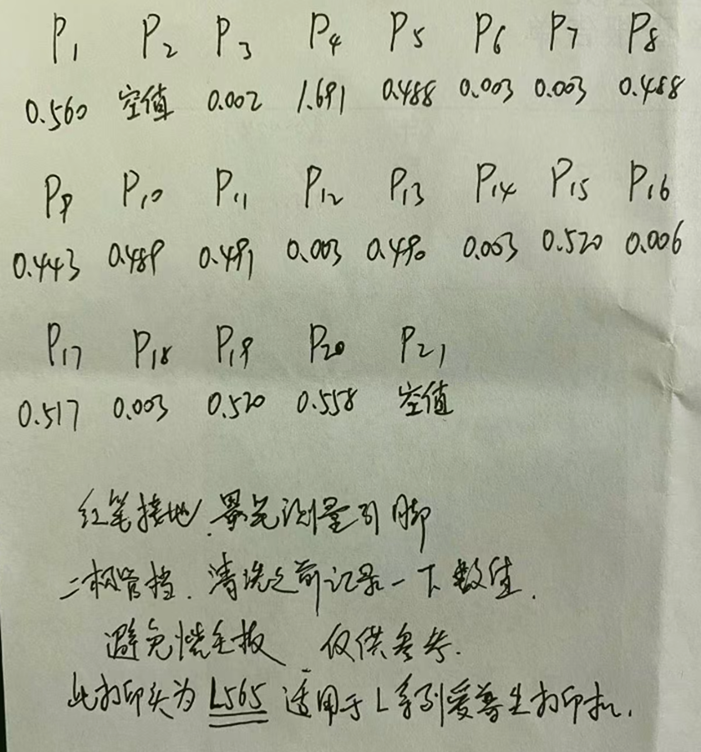 P1 P2 P3 P4 P5 P6 P7 P8
0.560 空值 0.002 1.691 0.488 0.003 0.003 0.488
P9 P10 P11 P12 P13 P14 P15 P16
0.443 0.489 0.491 0.003 0.490 0.003 0.520 0.006
P17 P18 P19 P20 P21
0.517 0.003 0.520 0.558 空值
红笔接地.黑笔测量引脚
二极管档.清洗之前记录一下数值.
避免烧主板 仅供参考.
此打印头为L565适用于L系列爱普生打印机.